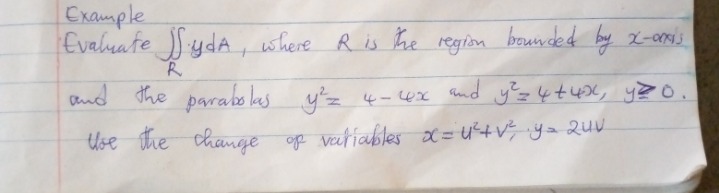 Example
Evaluate ∬_R y dA, where R is the region bounded by x-axis
and the parabolas y² = 4 - 4x and y² = 4 + 4x, y ≥ 0.
Use the change of variables x = u² + v², y = 2uv